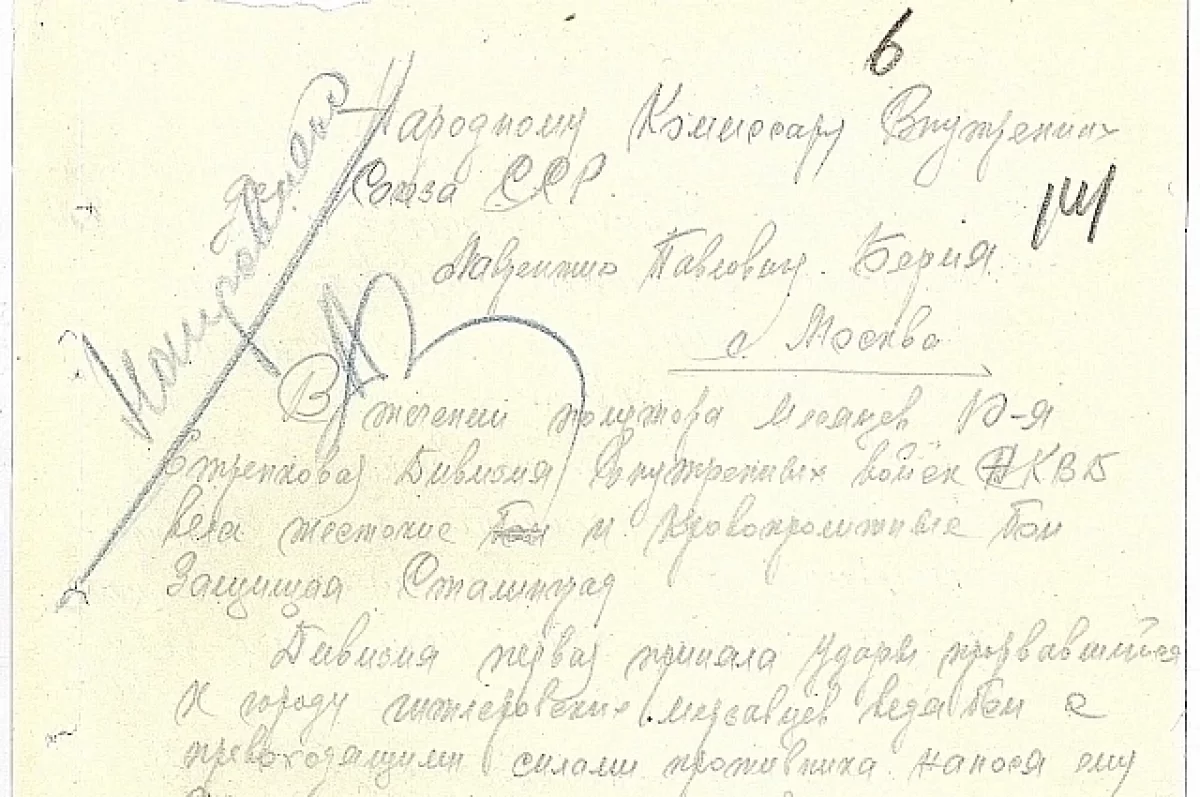 6
Народному Комиссару Внутренних
Союза ССР.
141
Лаврентию Павловичу Берия.
г. Москва
В течении полутора месяцев 10-я
Стрелковая Дивизия Внутренных войск НКВД
вела жестокие бои и кровопролитные бои
Защищая Сталинград
Дивизия первая приняла удары прорвавшийся
к городу гитлеровских мерзавцев ведя бои с
превосходящими силами противника нанося ему